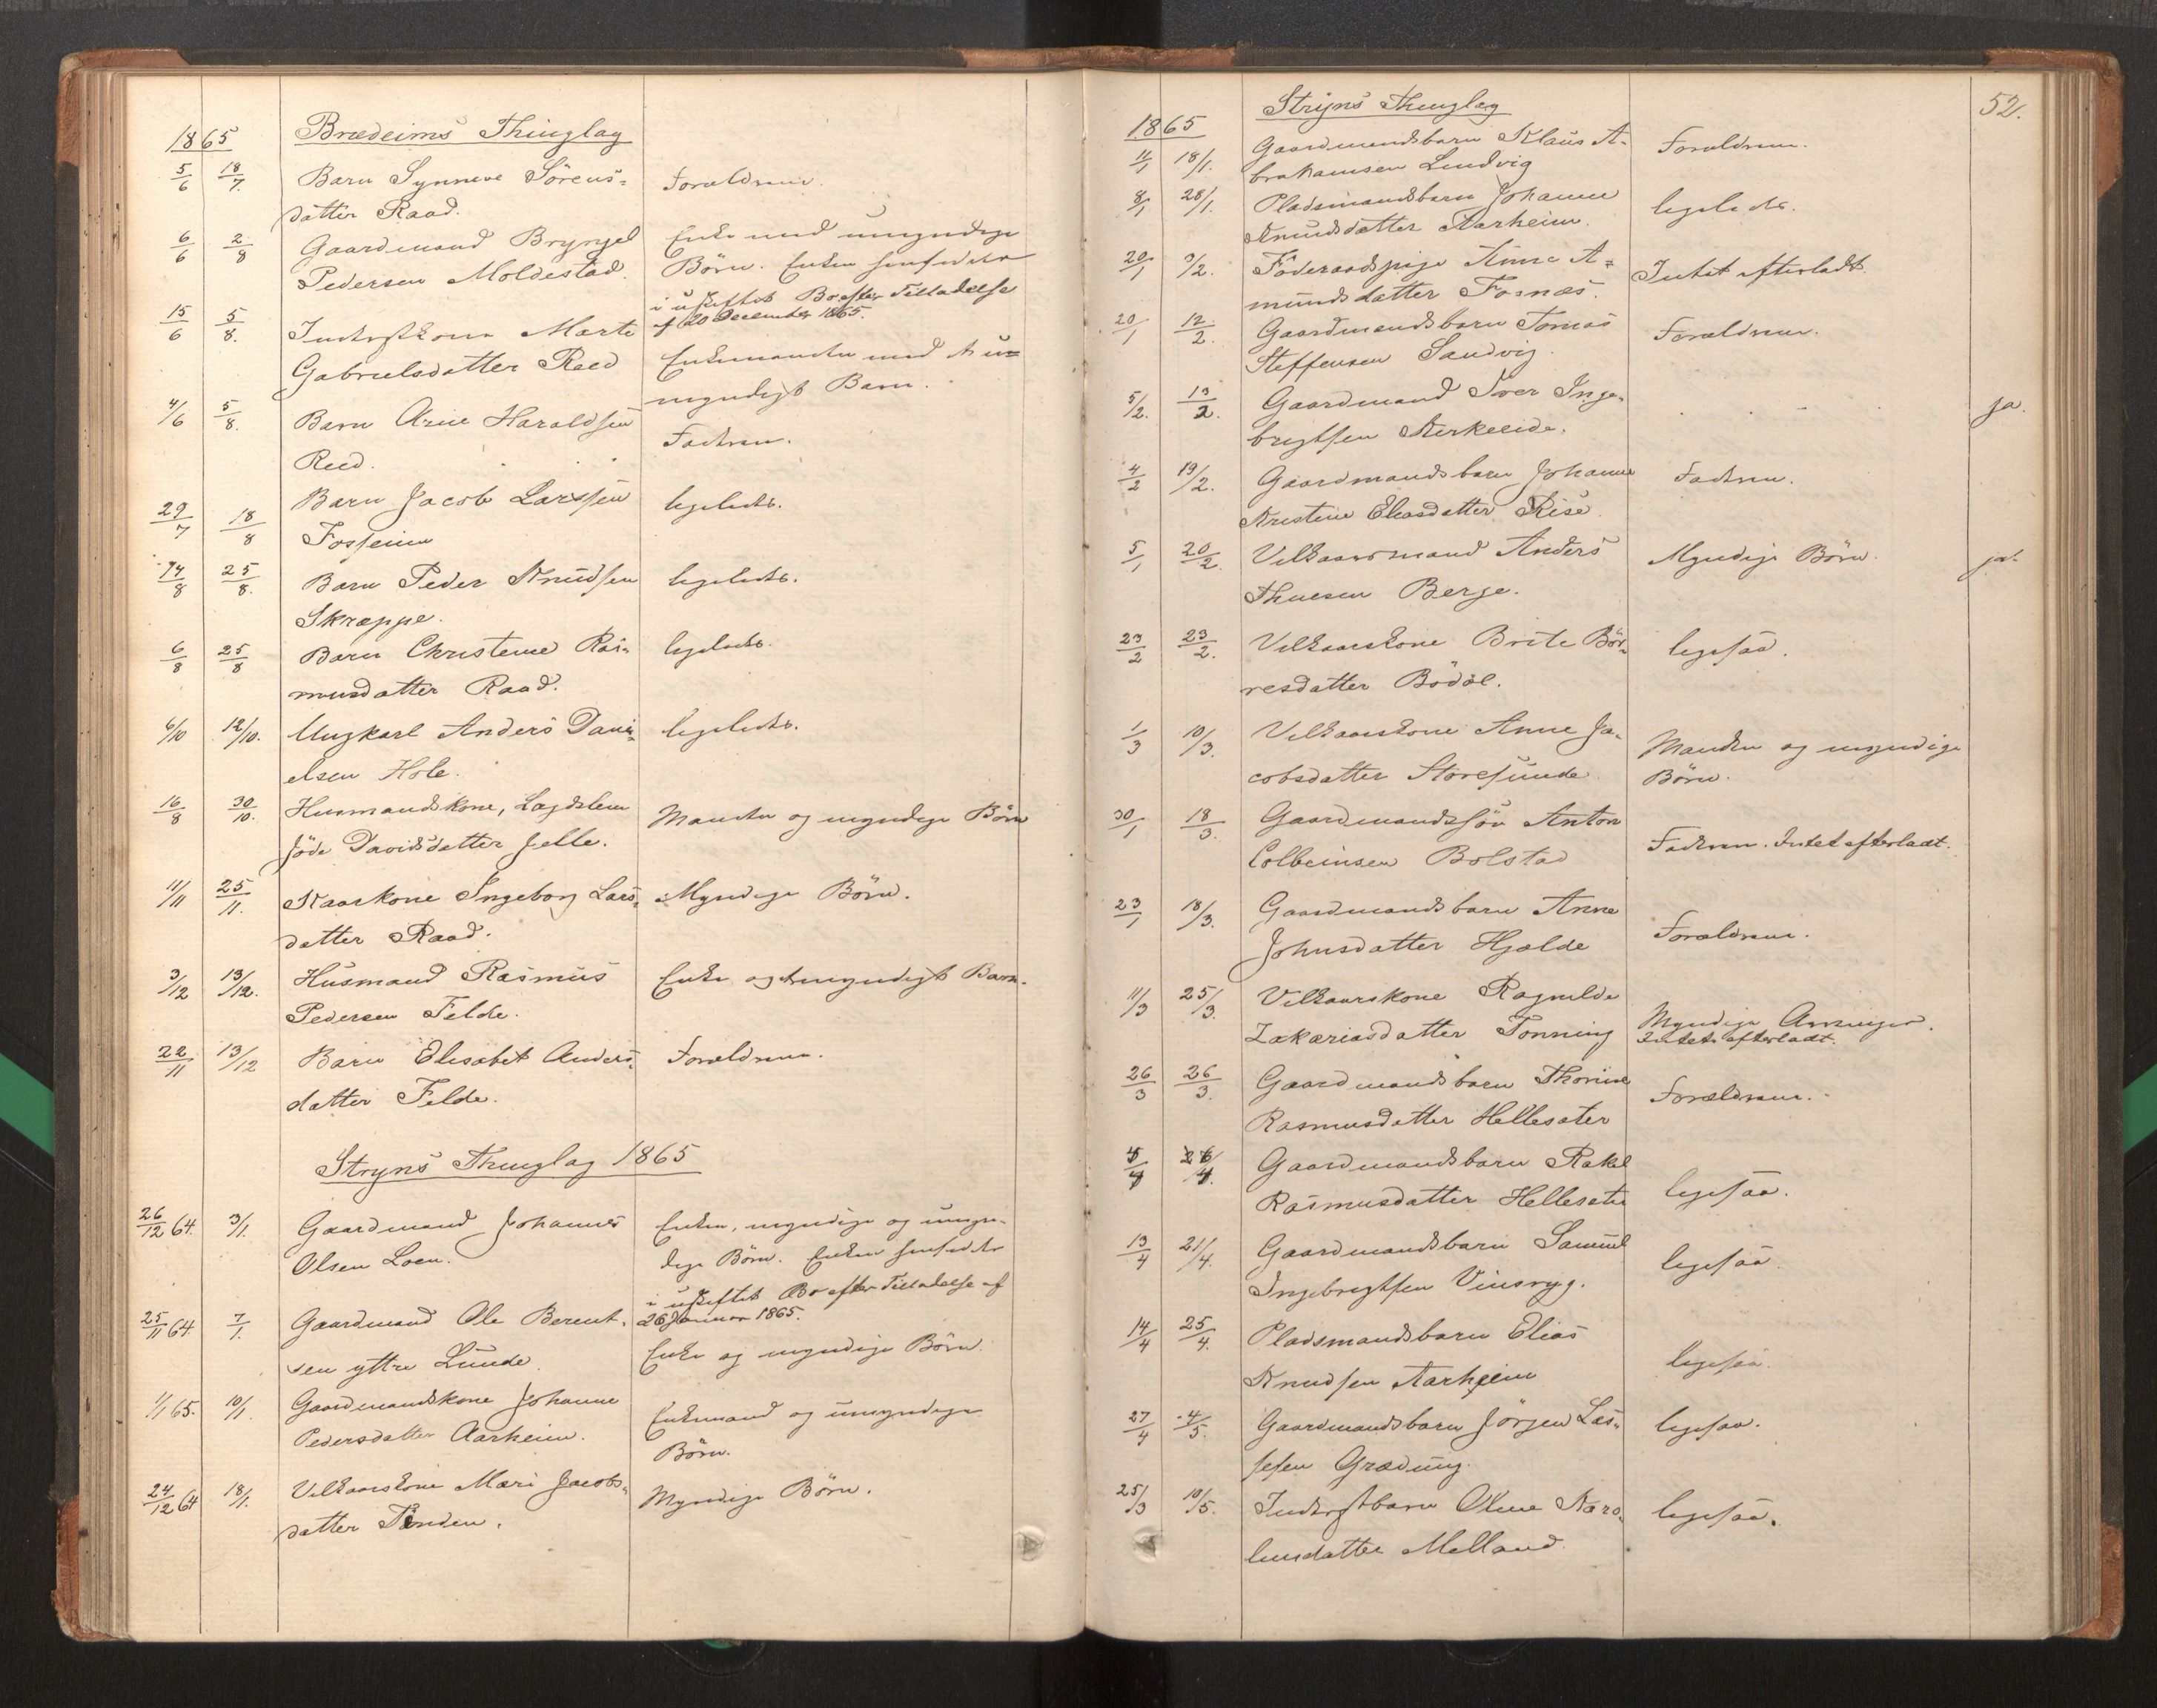 1865 Brædeims Thinglag
5/6 18/7 Barn Synneve Sörens- Forældrene.
datter Raad.
6/6 2/8 Gaardmand Bryngel Enke med umyndige
Pedersen Moldestad. Börn. Enken hensidder
i uskiftet Bo efter Tilladelse
af 20 December 1865.
15/6 5/8. Inderstkone Marte Enkemanden med et u=
Gabrielsdatter Reed myndigt Barn.
4/6 5/8. Barn Arne Haraldsen Faderen.
Reed.
29/7 18/8 Barn Jacob Larssen ligeledes.
Fosseim
14/8 25/8. Barn Peder Knudsen ligeledes.
Skræppe.
6/8 25/8 Barn Christense Ras- ligeledes.
musdatter Raad.
6/10 12/10. Ungkarl Anders Dani- ligeledes.
elsen Hole.
16/8 30/10. Husmandskone, Lægdslem Manden og myndige Börn
Jöde Davidsdatter Jelle.
11/11 25/11. Kaarkone Ingeborg Lars- Myndige Börn.
datter Raad.
3/12 13/12. Husmand Rasmus Enke og et myndigt Barn.
Pedersen Felde.
22/11 13/12 Barn Elisabet Anders- Forældrene.
datter Felde.
Stryns Thinglag 1865
26/12 64. 3/1. Gaardmand Johannes Enken, myndige og umyn-
Olsen Loen. dige Börn. Enken hensidder
i uskiftet Bo efter Tilladelse af
26 Januar 1865.
25/11 64. 7/1. Gaardmand Ole Berent-
sen yttre Lunde. Enke og myndige Börn.
1/1 65. 10/1. Gaardmandskone Johanne Enkemand og umyndige
Pedersdatter Aarheim. Börn.
24/12 64 18/1. Vilkaarskone Mari Jacobs- Myndige Börn.
datter Tenden.
52.
Stryns Thinglag
1865
11/1 18/1. Gaardmandsbarn Klaus A- Forældrene.
brahamsen Lindvig
8/1 28/1. Pladsmandsbarn Johanne ligeledes.
Knudsdatter Aarheim.
20/1 9/2. Föderaadspige Anne A= Intet efterladt.
mundsdatter Fosnæs.
20/1 12/2. Gaardmandsbarn Tomas Forældrene.
Steffensen Sandvig.
5/2. 13/2. Gaardmand Iver Inge- ja.
brigtsen Kirkeeide.
4/2 19/2. Gaardmandsbarn Johanne Faderen.
Kristine Eliasdatter Rise.
5/1 20/2. Vilkaarsmand Anders Myndige Börn. ja.
Thuesen Berge.
23/2 23/2. Vilkaarskone Brite Bör- ligesaa.
resdatter Bödal.
1/3 10/3. Vilkaarskone Anne Ja- Manden og myndige
cobsdatter Storesunde Börn.
30/1 18/3. Gaardmandssön Anton
Colbeinsen Bolstad Faderen. Intet efterladt.
23/1 18/3. Gaardmandsbarn Anne
Johnsdatter Hjælde Forældrene.
11/3 25/3. Vilkaarskone Ragnilde Myndige Arvinger.
Zakariasdatter Tonning Intet efterladt.
26/3 26/3. Gaardmandsbarn Thorine Forældrene.
Rasmusdatter Hellesæter
5/4 26/4. Gaardmandsbarn Rakel
Rasmusdatter Hellesæter ligesaa.
13/4 21/4. Gaardmandsbarn Samuel ligesaa.
Ingebrigtsen Vinsryg.
14/4 25/4. Pladsmandsbarn Elias
Knudsen Aarheim ligesaa.
27/4 4/5. Gaardmandsbarn Jörgen Las- ligesaa.
sesen Græding.
25/3 10/5. Inderstbarn Oline Karo- ligesaa.
liusdatter Melland.